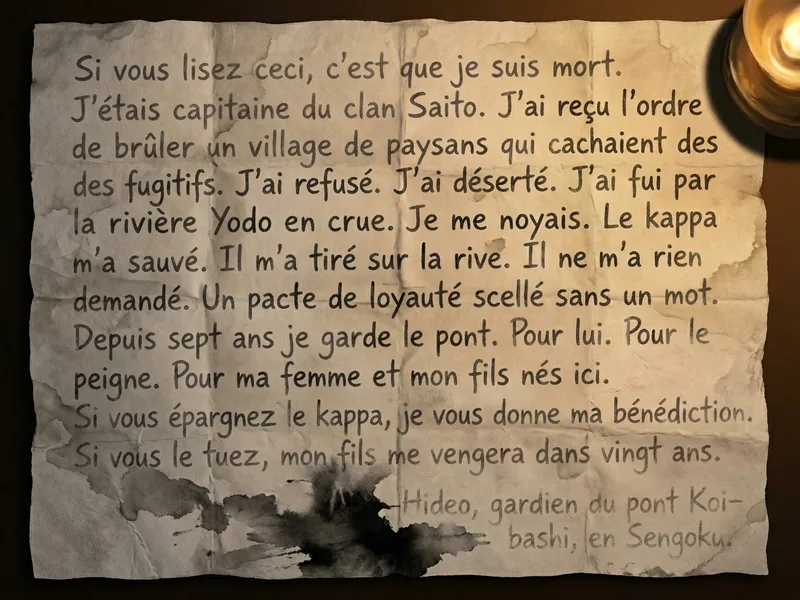 Si vous lisez ceci, c'est que je suis mort.
J'étais capitaine du clan Saito. J'ai reçu l'ordre
de brûler un village de paysans qui cachaient des
des fugitifs. J'ai refusé. J'ai déserté. J'ai fui par
la rivière Yodo en crue. Je me noyais. Le kappa
m'a sauvé. Il m'a tiré sur la rive. Il ne m'a rien
demandé. Un pacte de loyauté scellé sans un mot.
Depuis sept ans je garde le pont. Pour lui. Pour le
peigne. Pour ma femme et mon fils nés ici.
Si vous épargnez le kappa, je vous donne ma bénédiction.
Si vous le tuez, mon fils me vengera dans vingt ans.
Hideo, gardien du pont Koi-
bashi, en Sengoku.